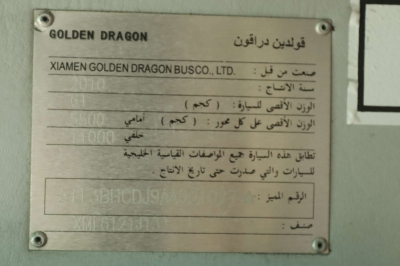 GOLDEN DRAGON قولدين دراقون
XIAMEN GOLDEN DRAGON BUSCO., LTD. صنعت من قبل :
سنة الانتاج :
2010
الوزن الأقصى للسيارة : ( كجم )
الوزن الأقصى على كل محور : ( كجم ) أمامي
خلفي
تطابق هذه السيارة جميع المواصفات القياسية الخليجية
للسيارات والتي صدرت حتى تاريخ الانتاج .
الرقم المميز :
صنف :